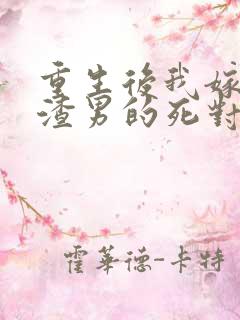 重生後我嫁
渣男的死對
霍華德-卡特